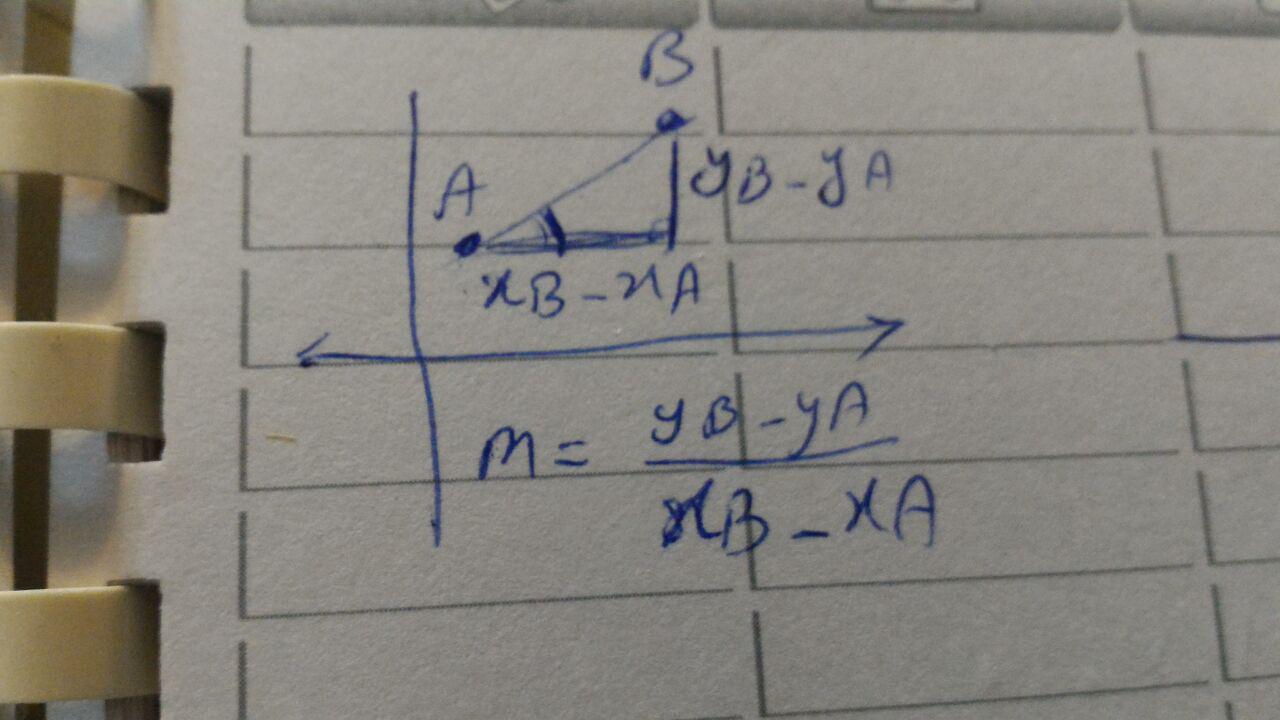 B
A
yB - yA
xB - xA
M = yB - yA
xB - xA